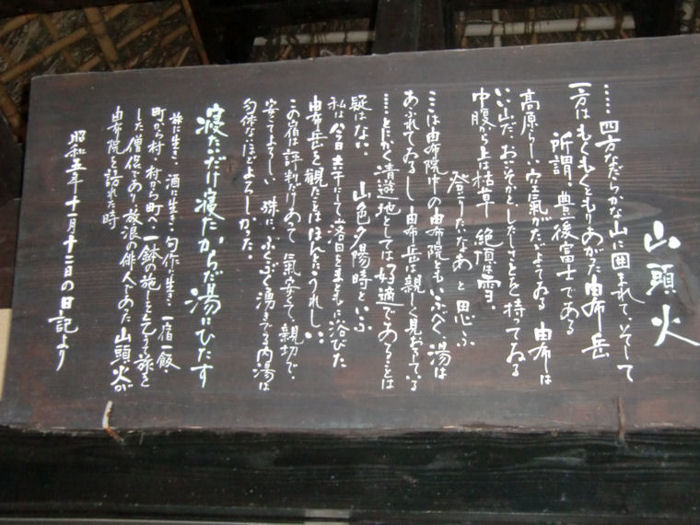 山頭火
……四方なだらかな山に囲まれて、そして
一方はもくもくともりあがった由布岳
所謂、豊後富士である
高原らしい空氣がただよてゐる 由布は
いい山だ、おごそかさとしたしさとを持ってゐる
中腹から上は枯草 絶頂は雪、
登りたいなあと思ふ
ここは由布院中の由布院ともいふべく、湯は
あふれてゐるし、由布岳は親しく見おろしている
……とにかく清遊地としては好適であることは
疑はない。
山色夕陽時といふ
私は今日幸にして落日をまともに浴びた
由布岳を観たことはほんとにうれしい、
この宿は評判だけあって 氣安くて、親切で、
安くてよろしい 殊に、ぶくぶく湧きでる内湯は
勿体ないほどよろしかった。
寝たいだけ寝たからだ湯にひたす
旅に生き・酒に生き・句作に生き・一宿一飯・
町から村・村から町へ一鉢の施しを乞う旅を
した僧侶であり放浪の俳人であった山頭火が
由布院を訪ねた時
昭和五年十一月十二日の日記より